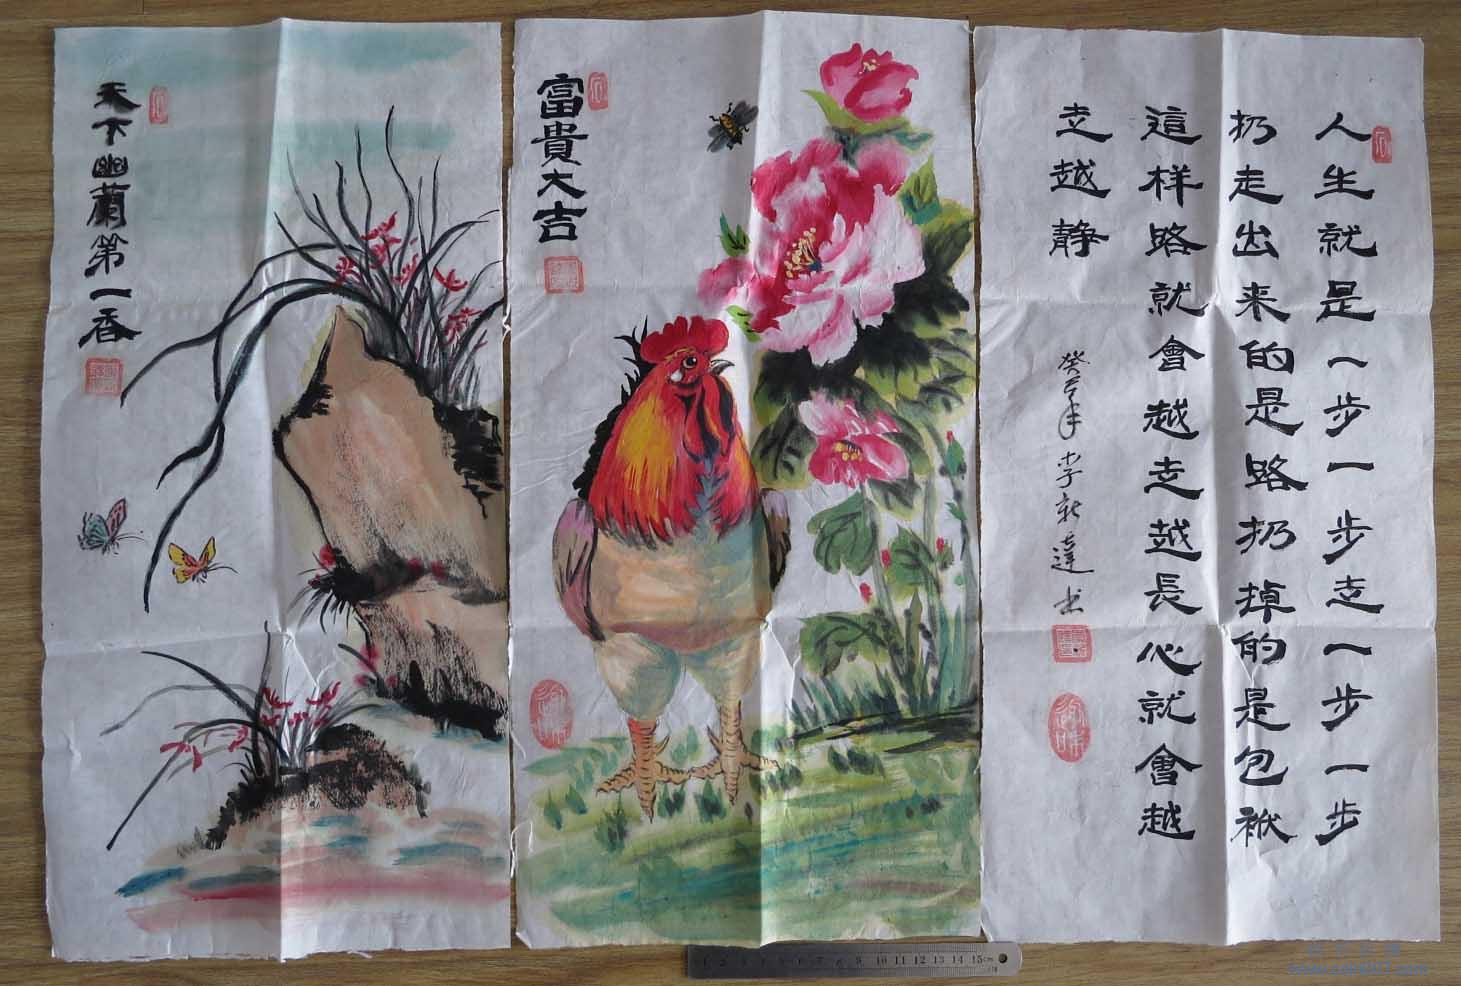 天下幽蘭第一香
富貴大吉
人生就是一步一步走一步一步
扔走出来的是路扔掉的是包袱
這样路就會越走越長心就會越
走越静
李新達书
1 2 3 4 5 6 7 8 9 10 11 12 13 14 15cm